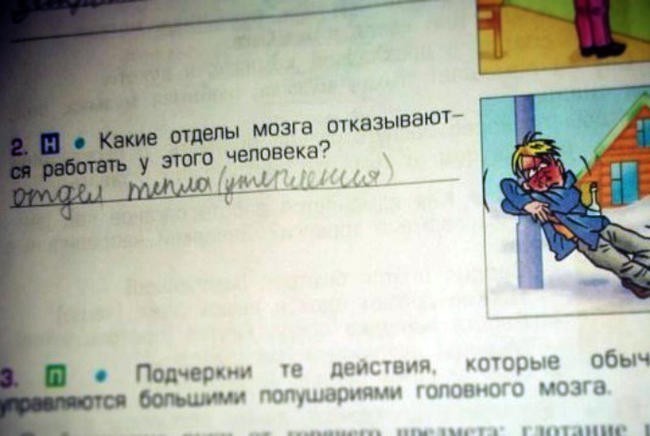 2. Н • Какие отделы мозга отказывают-
ся работать у этого человека?
отдел тепла (утепления)
3. П • Подчеркни те действия, которые обыч
управляются большими полушариями головного мозга.
от горячего предмета; глотание